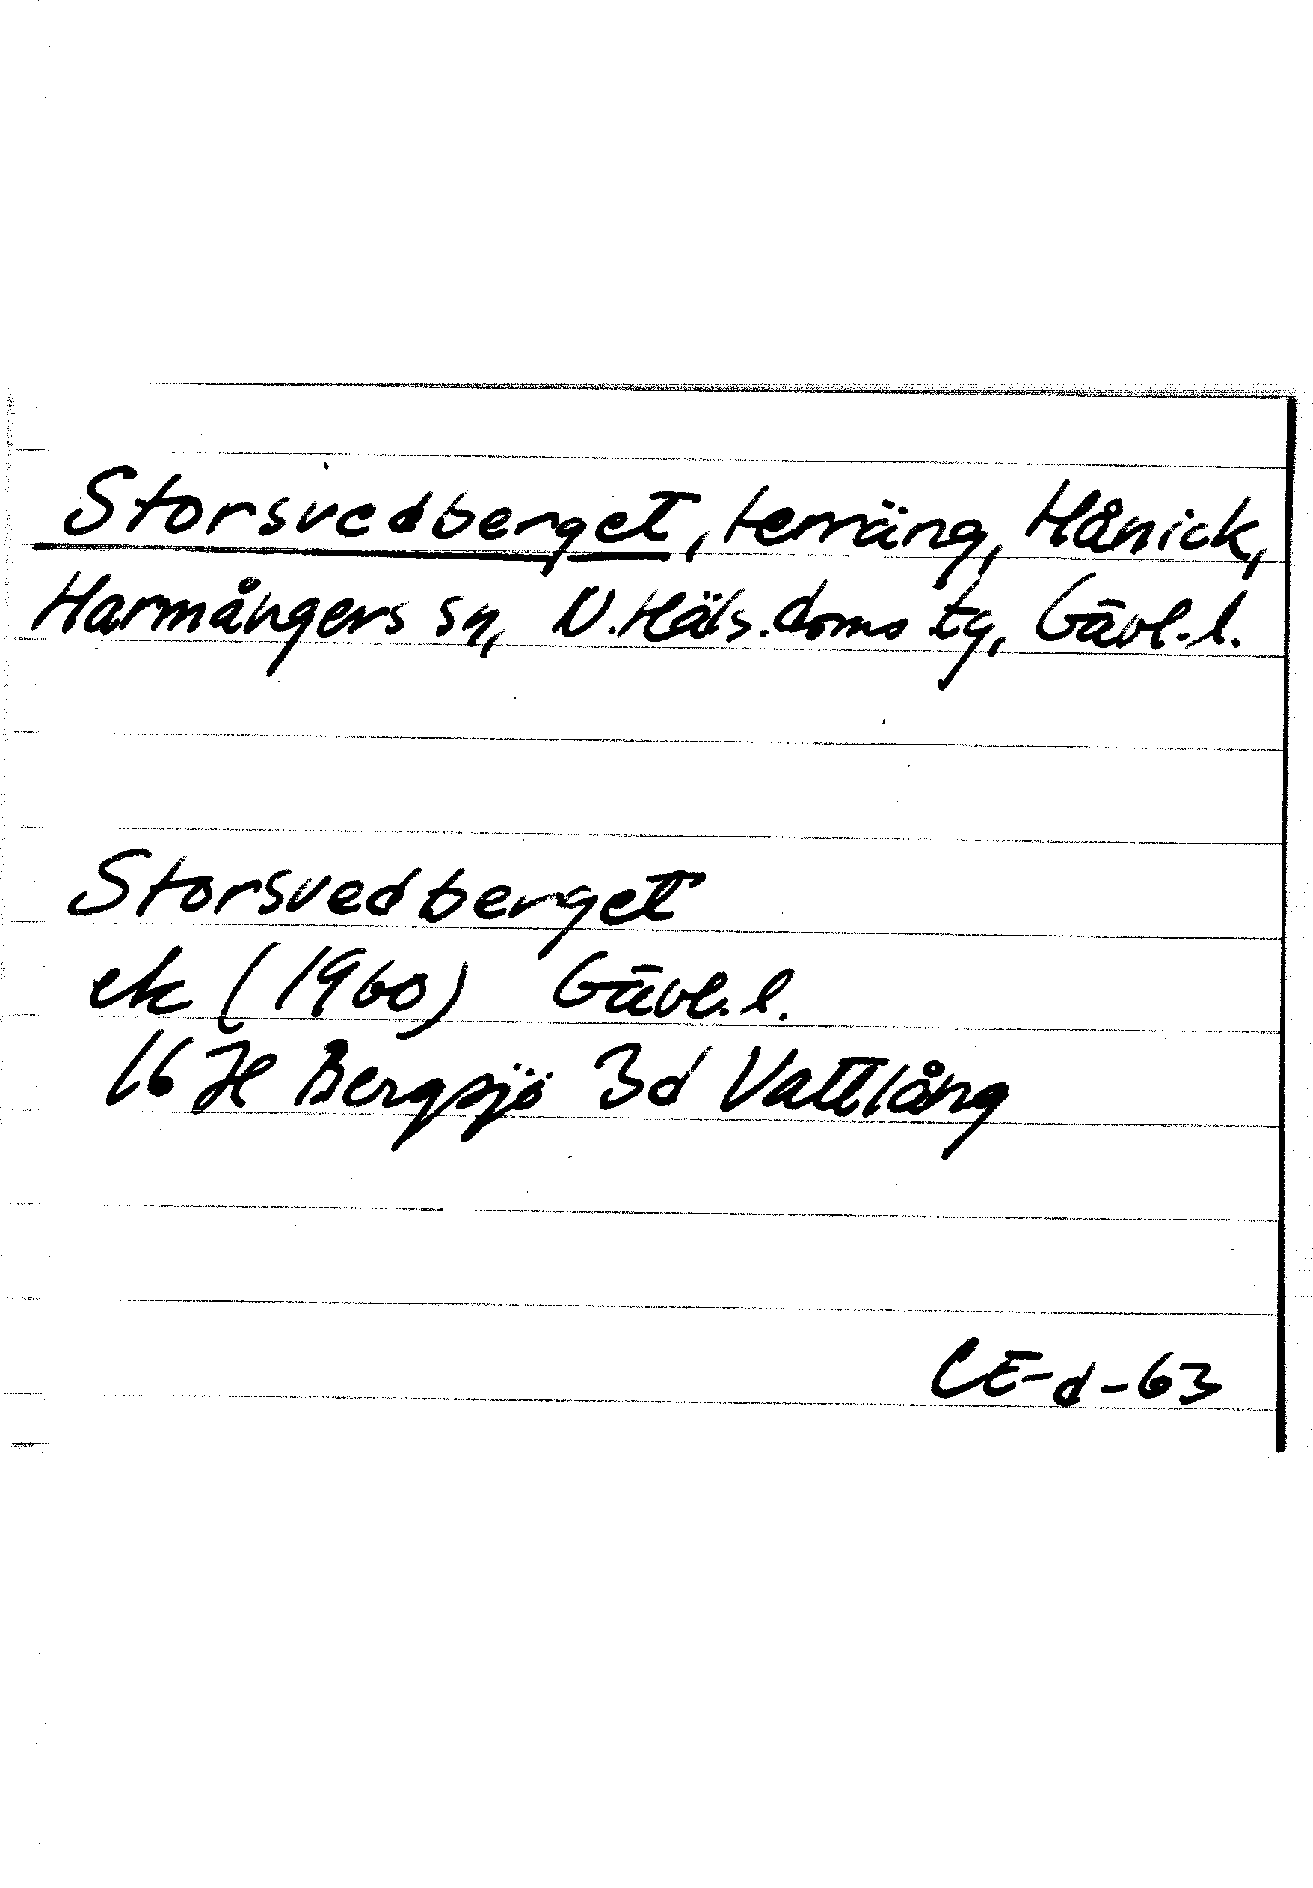 Storsvedberget, terräng, Hånick,
Harmångers sn, N. Häls. doms tg, Gävl. l.
Storsvedberget
ek (1960) Gävl. l.
16 H Bergsjö 3d Vattlång
CE-d-63